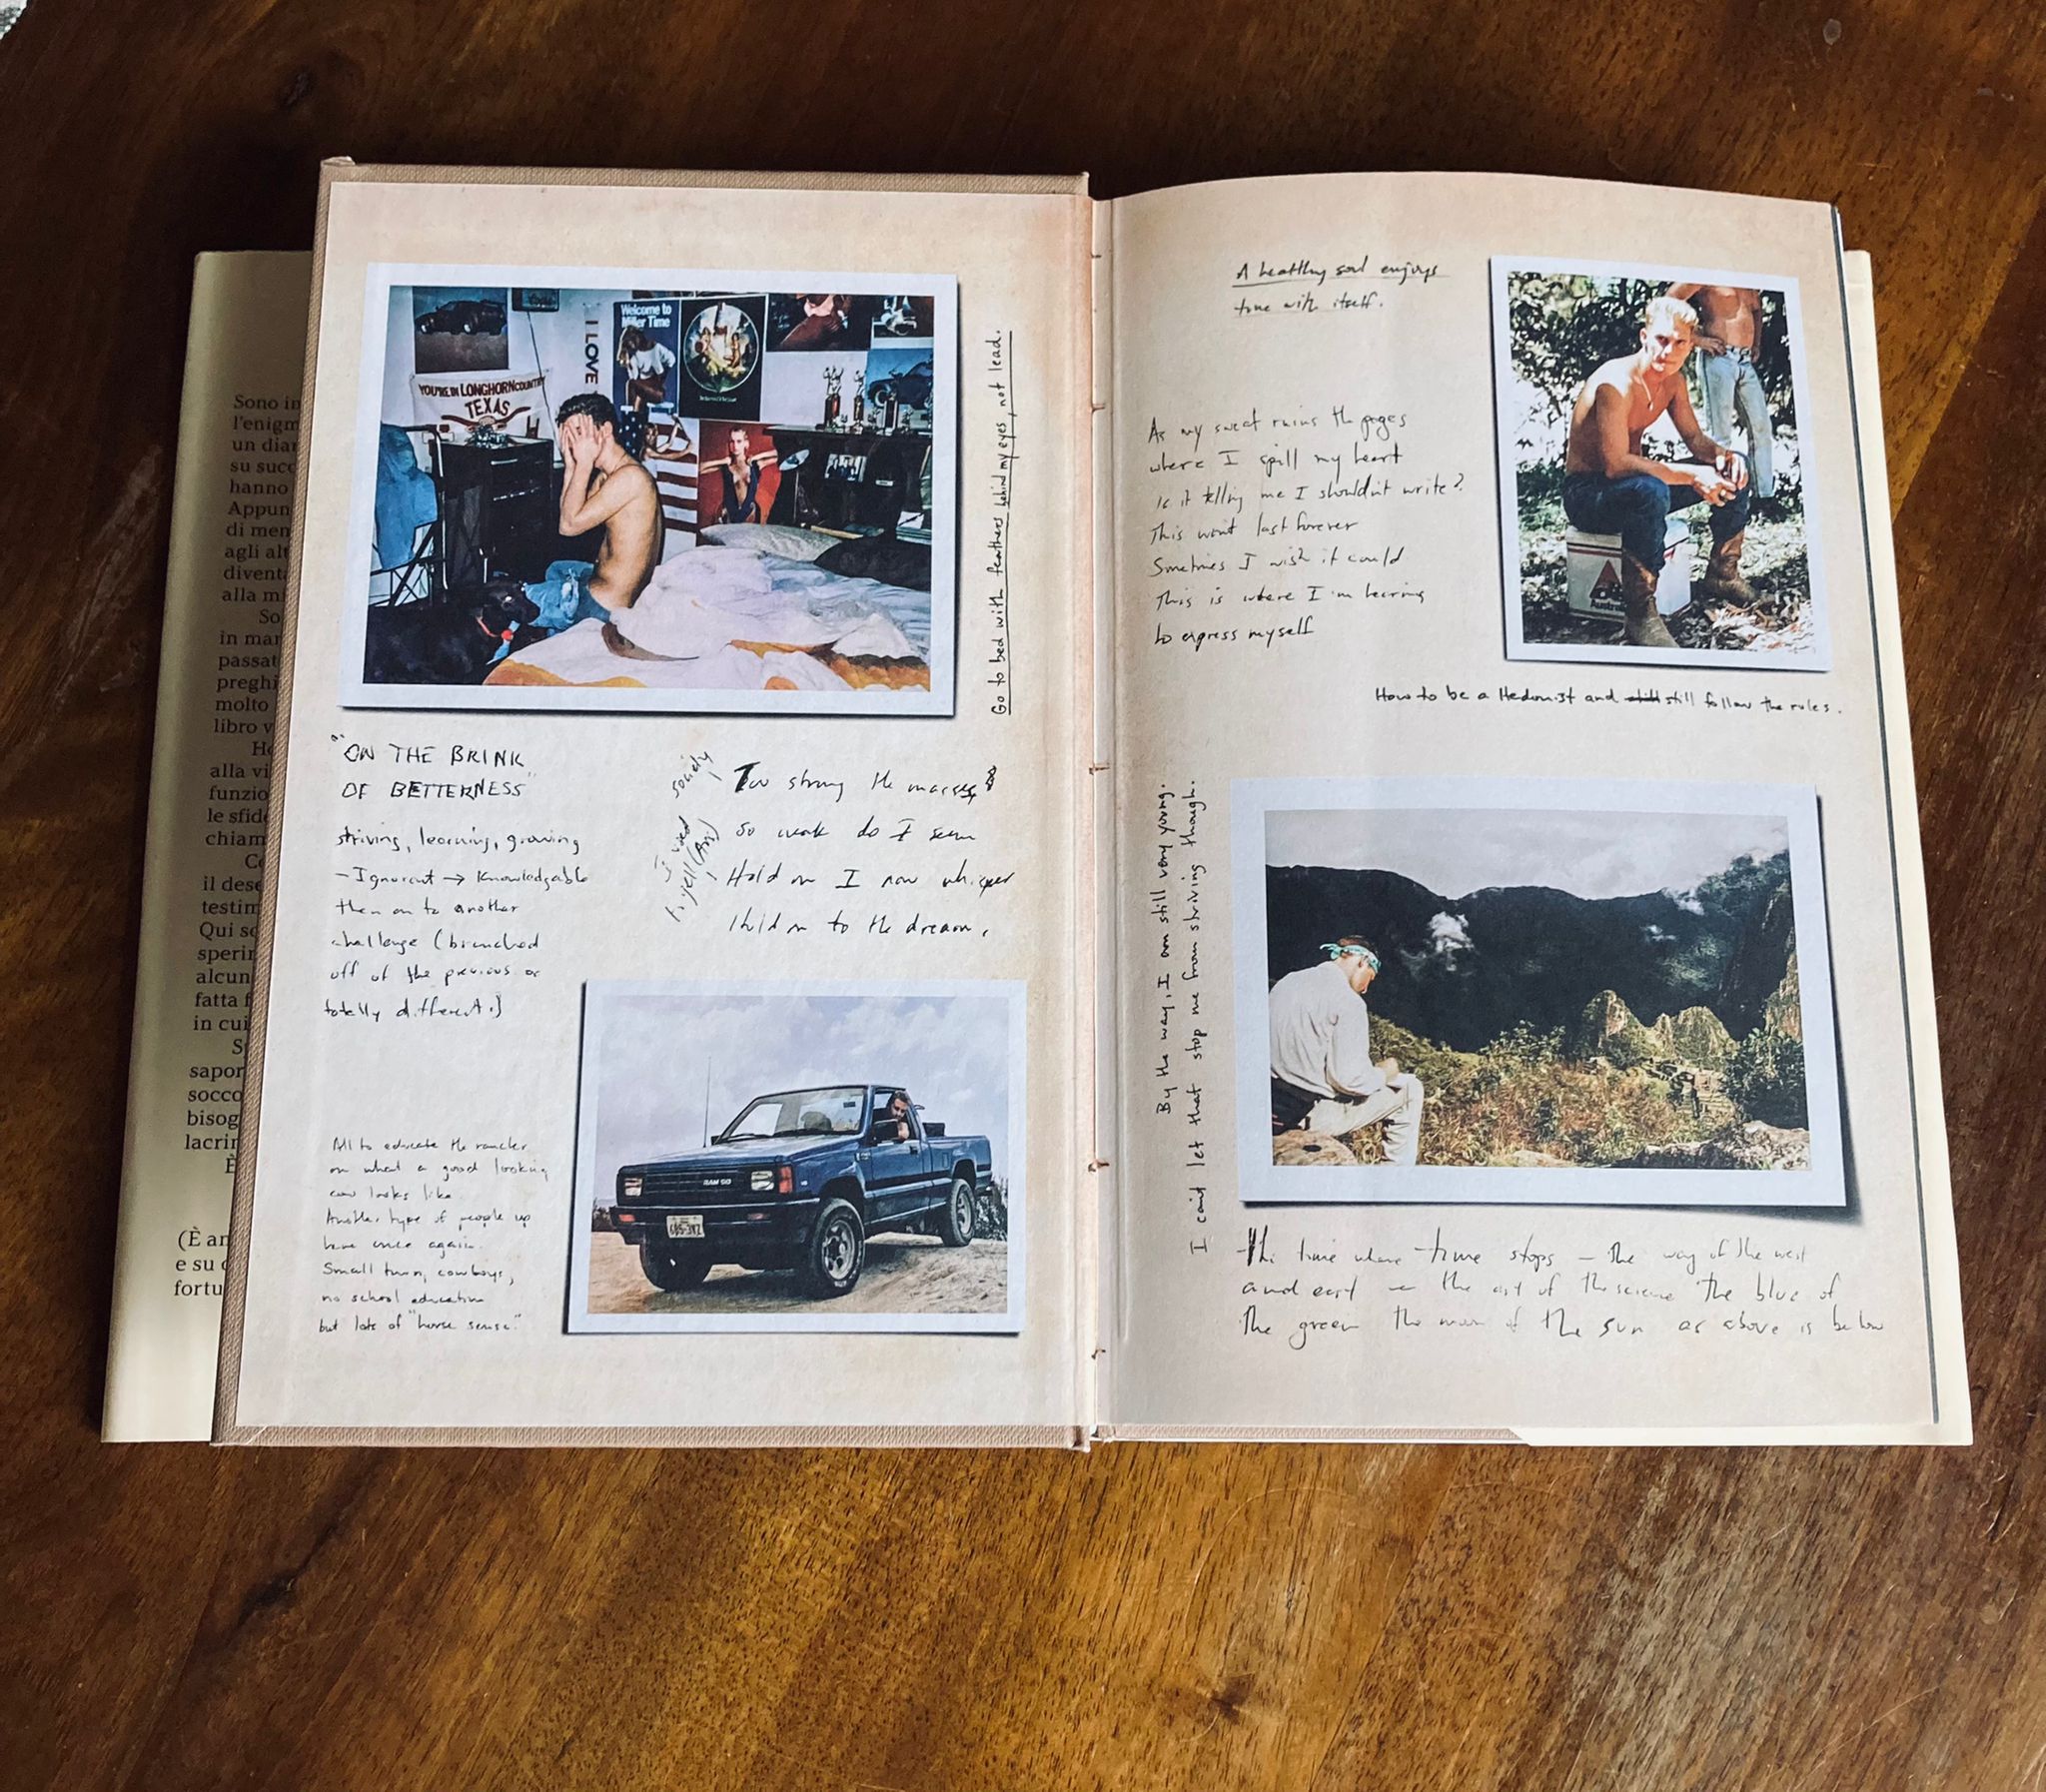 Sono in
l'enigm
un diar
su succ
hanno
Appun
di mem
agli alt
diventa
alla mi
So
in man
passat
preghi
molto
libro v
Ho
alla vi
funzio
le sfide
chiam
Co
il dese
testim
Qui so
sperin
alcun
fatta f
in cui
S
sapor
socco
bisog
lacrin
È
(È an
e su c
fortu
I LOVE
Welcome to
Miller Time
YOU'RE IN LONGHORN COUNTRY
TEXAS
Go to bed with feathers behind my eyes, not lead.
"ON THE BRINK
OF BETTERNESS"
striving, learning, growing
- Ignorant → Knowledgable
then on to another
challenge (branched
off of the previous or
totally different.)
society
Too strong the masses
So weak do I seem
Hold on I now whisper
Hold on to the dream.
All to educate the rancher
on what a good looking
cow looks like.
Another type of people up
here once again.
Small town, cowboys,
no school education
but lots of "horse sense."
RAM 50
A healthy soul enjoys
time with itself.
As my sweat ruins the pages
where I spill my heart
Is it telling me I shouldn't write?
This won't last forever
Sometimes I wish it could
This is where I'm learning
to express myself
How to be a Hedonist and still still follow the rules.
By the way, I am still very young.
I can't let that stop me from striving though.
The time where time stops – The way of the west
and east – the art of the science the blue of
The green the man of the sun as above is below